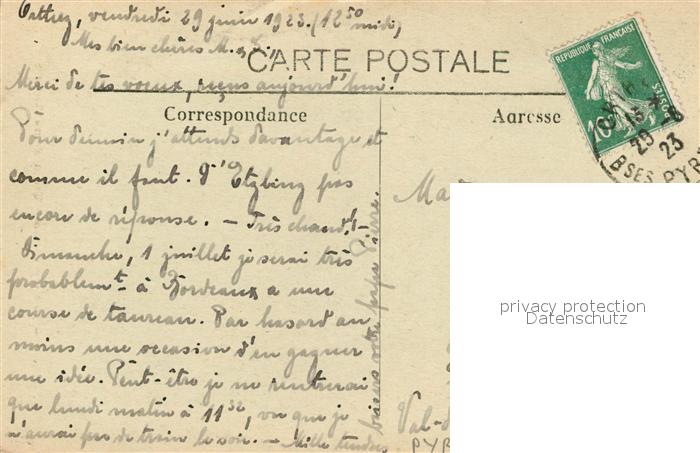 Orthez, vendredi 29 juin 1923. (12⁵⁰ midi,
Mes bien chères M. & L.,
CARTE POSTALE
Merci de tes voeux, reçus aujourd'hui!
Correspondance
Adresse
Pour demain j'attends davantage et
comme il faut. D'Etzbing pas
encore de réponse. — Très chaud! —
Dimanche, 1 juillet je serai très
probablemt à Bordeaux a une
course de taureau. Par hasard au
moins une occasion d'en gagner
une idée. Pêut-être je ne rentrerai
que lundi matin à 11³², vu que je
n'aurai pas de train le soir. — Mille tendres
baisers votre papa Pierre.
REPUBLIQUE FRANÇAISE
POSTES
10
29 - 6
23
BSES PYR
Ma
Val-d
PYR
privacy protection
Datenschutz